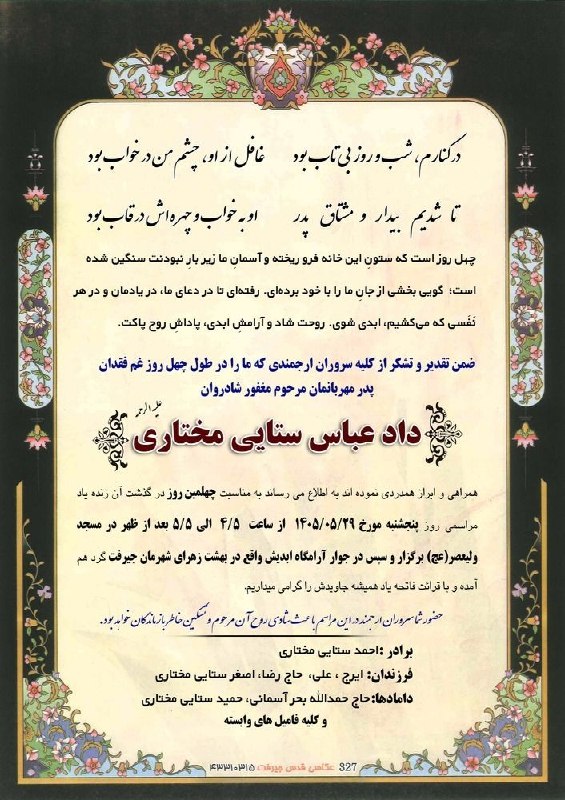 در کنارم، شب و روز بی تاب بود غافل از او، چشم من در خواب بود
تا شدیم بیدار و مشتاق پدر او به خواب و چهره اش در قاب بود
چهل روز است که ستونِ این خانه فرو ریخته و آسمانِ ما زیر بارِ نبودنت سنگین شده
است؛ گویی بخشی از جانِ ما را با خود برده‌ای. رفته‌ای تا در دعای ما، در یادمان و در هر
نَفَسی که می‌کشیم، ابدی شوی. روحت شاد و آرامشِ ابدی، پاداشِ روح پاکت.
ضمن تقدیر و تشکر از کلیه سروران ارجمندی که ما را در طول چهل روز غم فقدان
پدر مهربانمان مرحوم مغفور شادروان
داد عباس ستایی مختاری علیه الرحمه
همراهی و ابراز همدردی نموده اند به اطلاع می رساند به مناسبت چهلمین روز در گذشت آن زنده یاد
مراسمی روز پنجشنبه مورخ ۱۴۰۵/۰۵/۲۹ از ساعت ۴/۵ الی ۵/۵ بعد از ظهر در مسجد
ولیعصر(عج) برگزار و سپس در جوار آرامگاه ابدیش واقع در بهشت زهرای شهرمان جیرفت گرد هم
آمده و با قرائت فاتحه یاد همیشه جاویدش را گرامی میداریم.
حضور شما سروران ارجمند در این مراسم باعث شادی روح آن مرحوم و تسکین خاطر بازماندگان خواهد بود.
برادر: احمد ستایی مختاری
فرزندان: ایرج ، علی، حاج رضا، اصغر ستایی مختاری
دامادها: حاج حمدالله بحر آسمانی، حمید ستایی مختاری
و کلیه فامیل های وابسته
327 عکاسی قدس جیرفت ۴۳۳۱۰۳۱۵